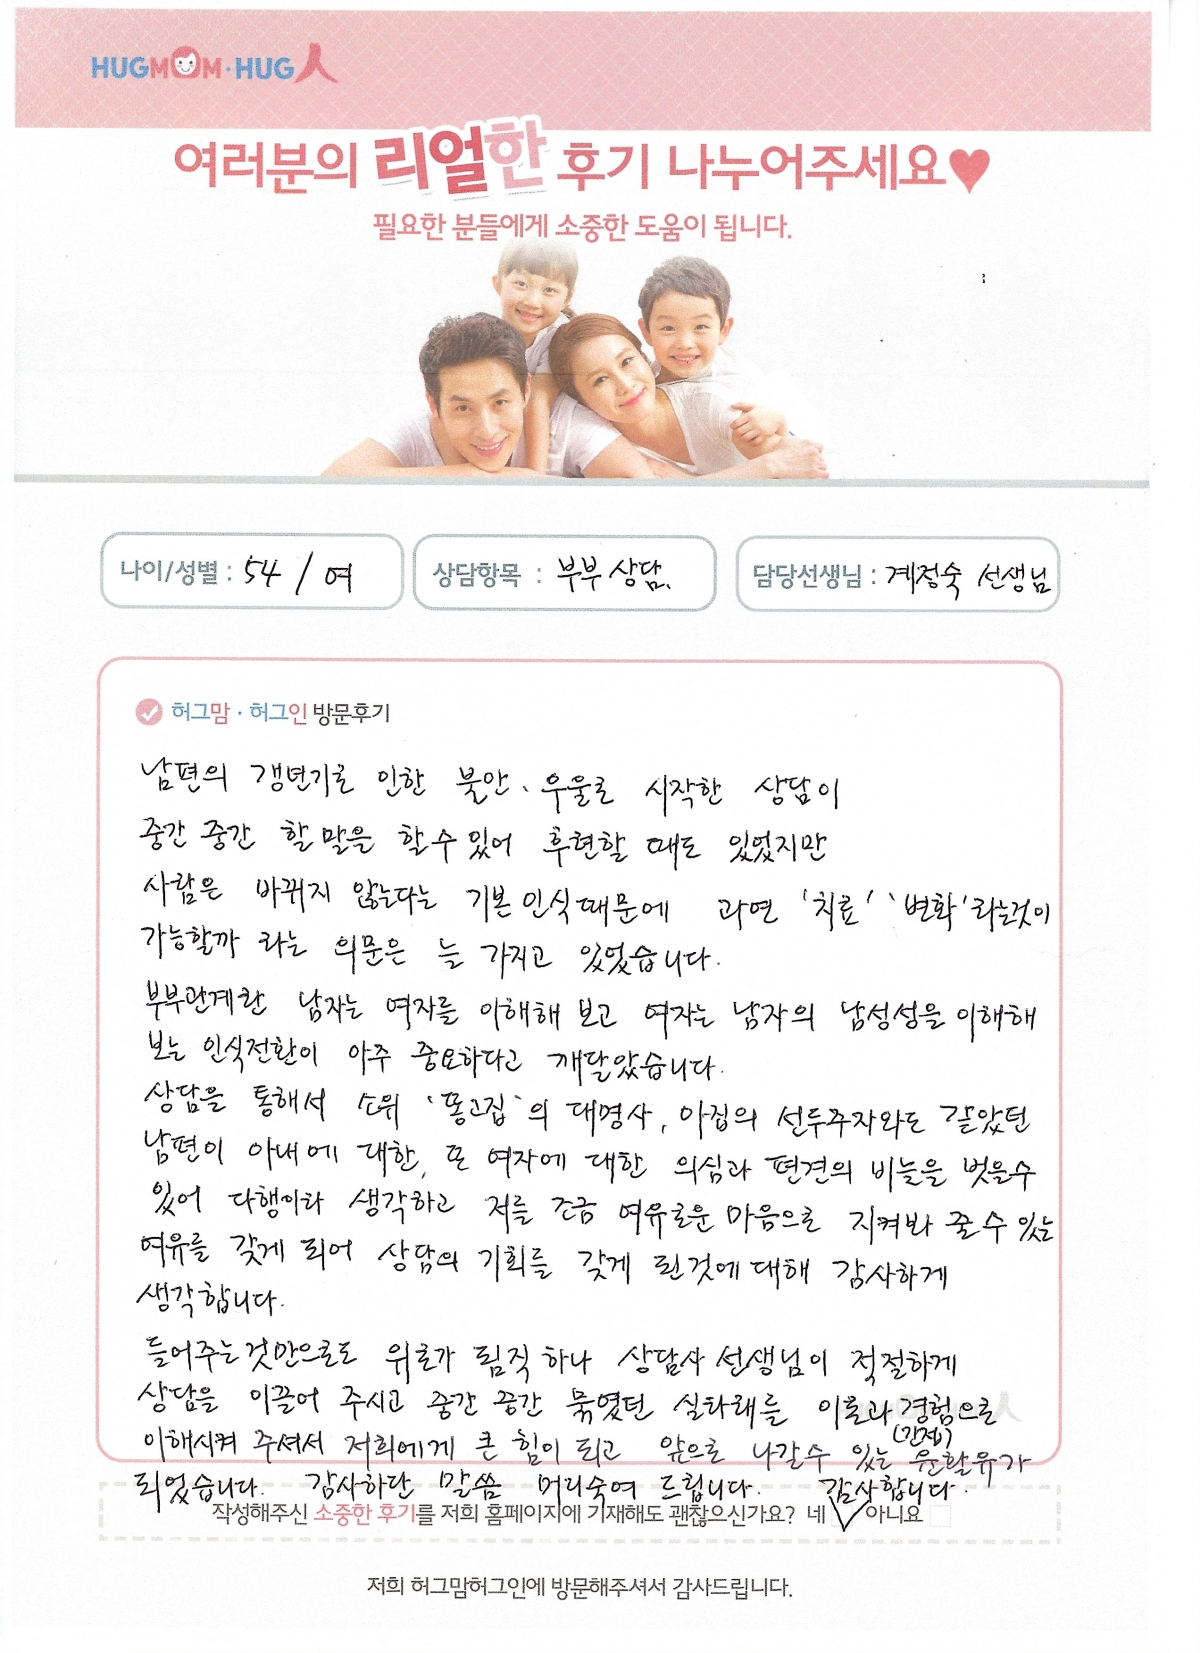 HUGMOM·HUG人
여러분의 리얼한 후기 나누어주세요♥
필요한 분들에게 소중한 도움이 됩니다.
나이/성별 : 54 / 여
상담항목 : 부부상담.
담당선생님 : 계정숙 선생님
허그맘·허그인 방문후기
남편의 갱년기로 인한 불안、우울로 시작한 상담이
중간 중간 할 말을 할 수 있어 후련할 때도 있었지만
사람은 바뀌지 않는다는 기본 인식때문에 과연 '치료' '변화'라는것이
가능할까 라는 의문은 늘 가지고 있었습니다.
부부관계란 남자는 여자를 이해해 보고 여자는 남자의 남성성을 이해해
보는 인식전환이 아주 중요하다고 깨달았습니다.
상담을 통해서 소위 '똥고집'의 대명사, 아집의 선두주자와도 같았던
남편이 아내에 대한, 또 여자에 대한 의심과 편견의 비늘을 벗을수
있어 다행이라 생각하고 저를 조금 여유로운 마음으로 지켜봐 줄 수 있는
여유를 갖게 되어 상담의 기회를 갖게 된것에 대해 감사하게
생각합니다.
들어주는것만으로도 위로가 됨직 하나 상담사 선생님이 적절하게
상담을 이끌어 주시고 중간 중간 묶였던 실타래를 이론과 경험으로
(간접)
이해시켜 주셔서 저희에게 큰 힘이 되고 앞으로 나갈수 있는 윤활유가
되었습니다. 감사하단 말씀 머리숙여 드립니다. 감사합니다.
작성해주신 소중한 후기를 저희 홈페이지에 기재해도 괜찮으신가요? 네 아니요
저희 허그맘허그인에 방문해주셔서 감사드립니다.